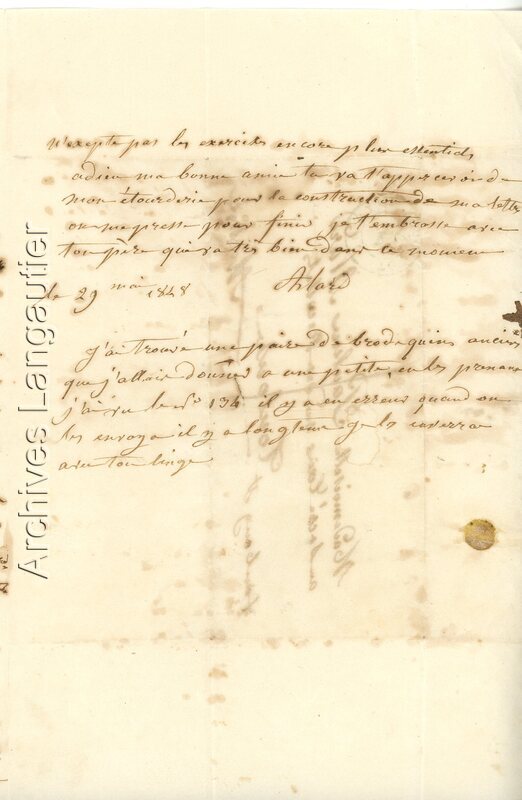 n'excepte pas les exercices encore plus essentiels
adieu ma bonne amie tu vas t'appercevoir de
mon étourderie pour la construction de ma lettre
on me presse pour finir je t'embrasse avec
ton père qui va très bien dans ce moment
le 29 mai 1848 Allard
J'ai trouvé une paire de brodequins anciens
que j'allais donner a une petite, en les prenant
j'ai vu le N° 134 il y a eu erreur quand on
les envoya il y a longtems je les
avec ton linge
Archives Langautier